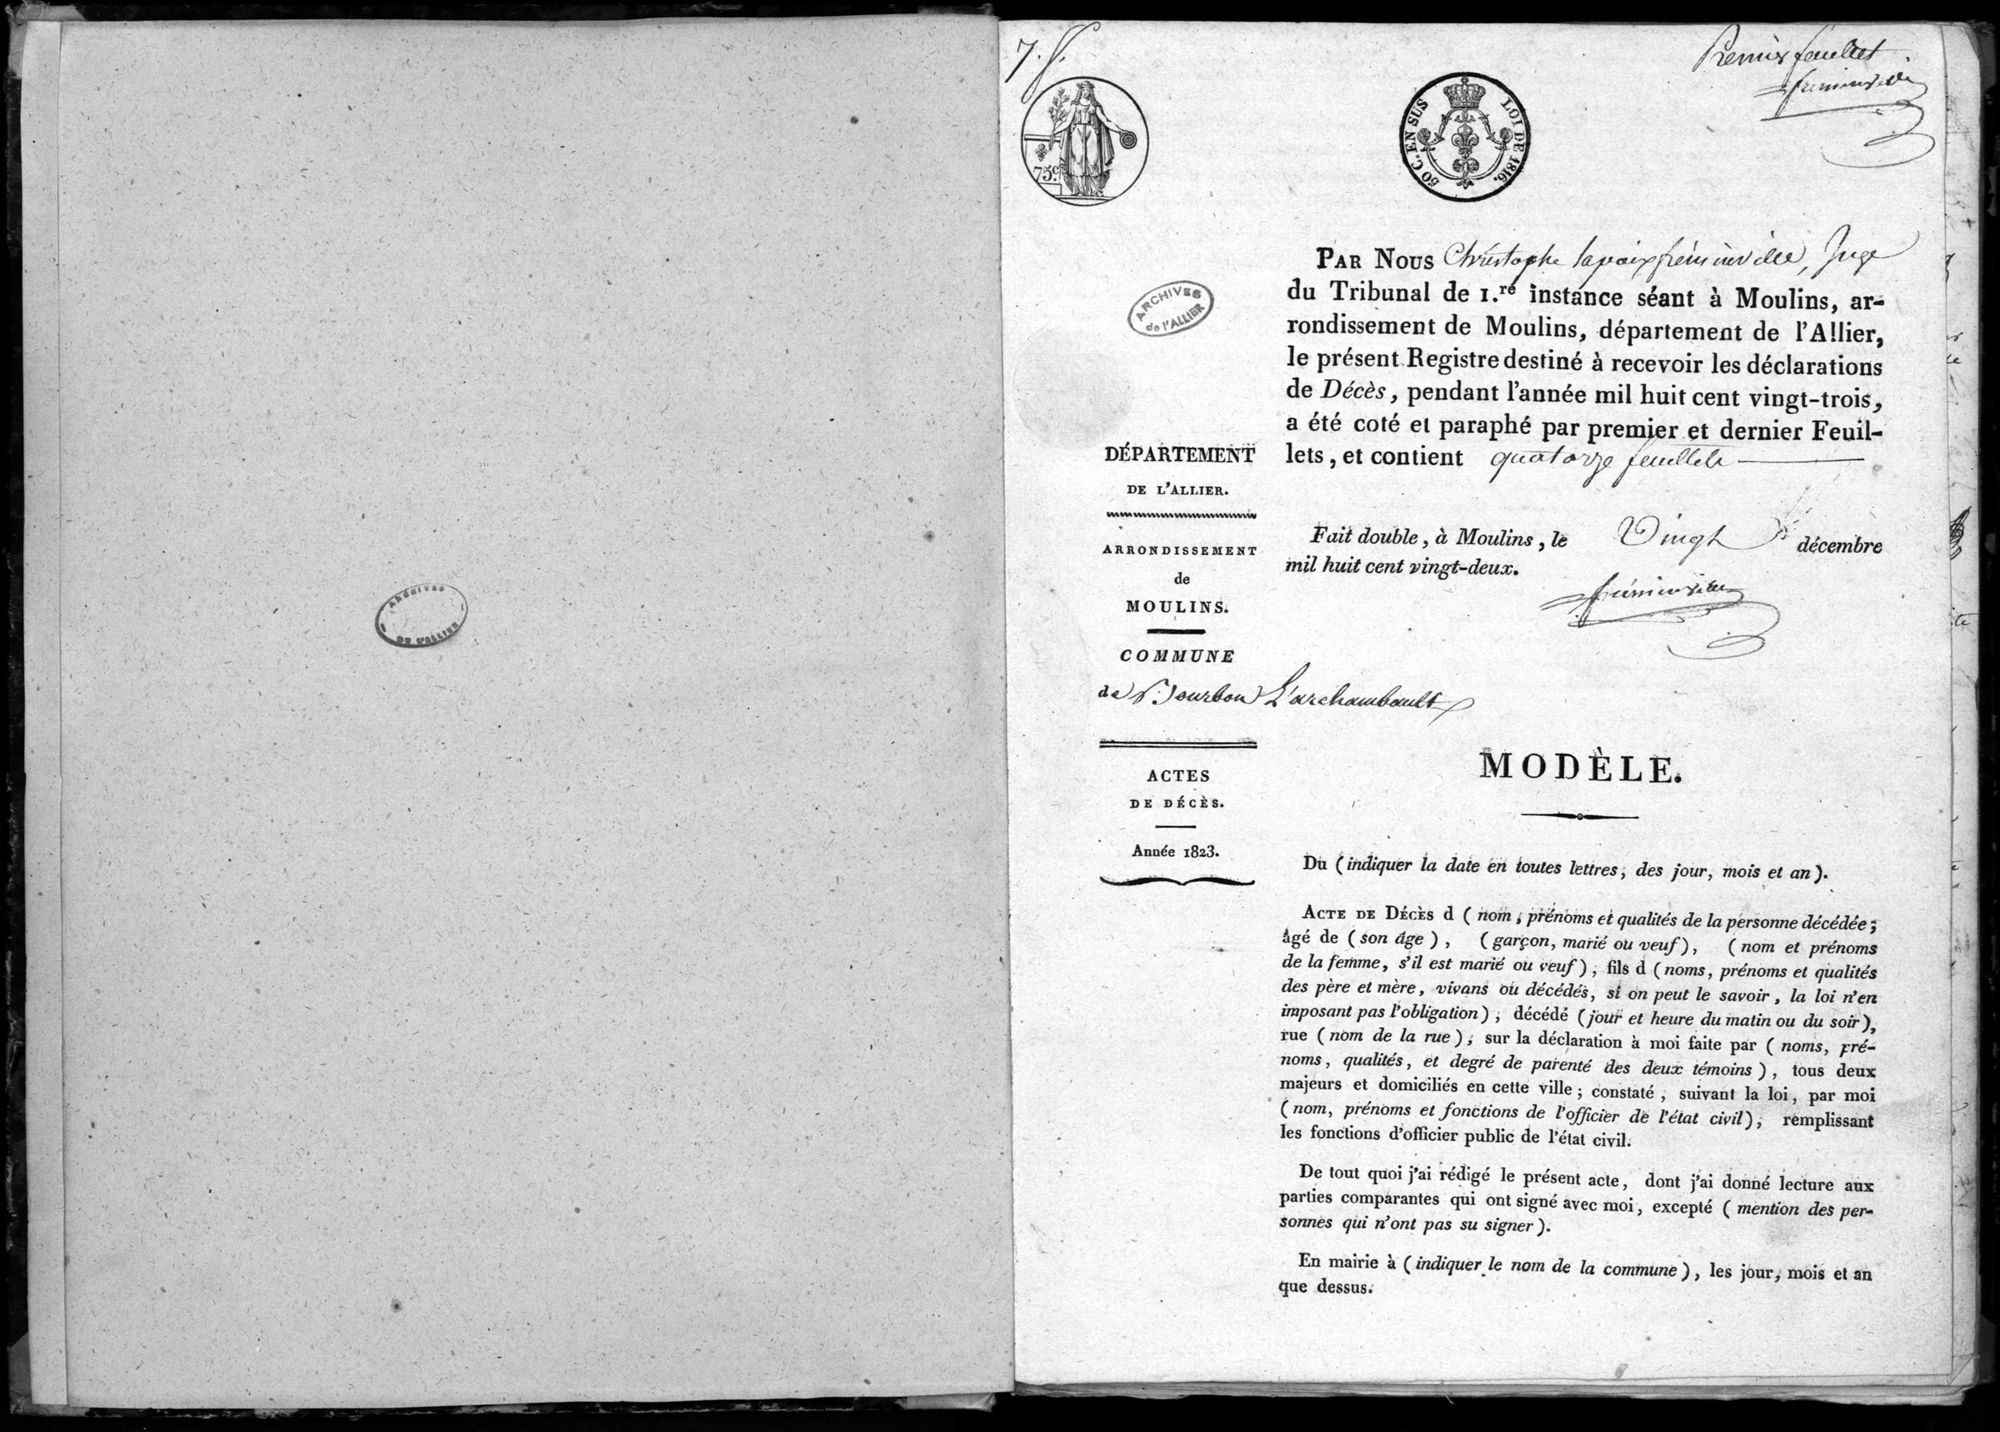 ARCHIVES
DE L'ALLIER
Premier feuillet
freminville
75 c.
50 C. EN SUS LOI DE 1816.
ARCHIVES
de l'ALLIER
PAR NOUS Christophe lapoix freminville, Juge
du Tribunal de 1.re instance séant à Moulins, ar-
rondissement de Moulins, département de l'Allier,
le présent Registre destiné à recevoir les déclarations
de Décès, pendant l'année mil huit cent vingt-trois,
a été coté et paraphé par premier et dernier Feuil-
lets, et contient quatorze feuillets
Fait double, à Moulins, le Vingt décembre
mil huit cent vingt-deux.
freminville
DÉPARTEMENT
DE L'ALLIER.
ARRONDISSEMENT
de
MOULINS.
COMMUNE
de Bourbon L'archambault
ACTES
DE DÉCÈS.
Année 1823.
MODÈLE.
Du (indiquer la date en toutes lettres, des jour, mois et an).
ACTE DE DÉCÈS d (nom, prénoms et qualités de la personne décédée;
âgé de (son âge), (garçon, marié ou veuf), (nom et prénoms
de la femme, s'il est marié ou veuf), fils d (noms, prénoms et qualités
des père et mère, vivans ou décédés, si on peut le savoir, la loi n'en
imposant pas l'obligation), décédé (jour et heure du matin ou du soir),
rue (nom de la rue); sur la déclaration à moi faite par (noms, pré-
noms, qualités, et degré de parenté des deux témoins), tous deux
majeurs et domiciliés en cette ville; constaté, suivant la loi, par moi
(nom, prénoms et fonctions de l'officier de l'état civil), remplissant
les fonctions d'officier public de l'état civil.
De tout quoi j'ai rédigé le présent acte, dont j'ai donné lecture aux
parties comparantes qui ont signé avec moi, excepté (mention des per-
sonnes qui n'ont pas su signer).
En mairie à (indiquer le nom de la commune), les jour, mois et an
que dessus.